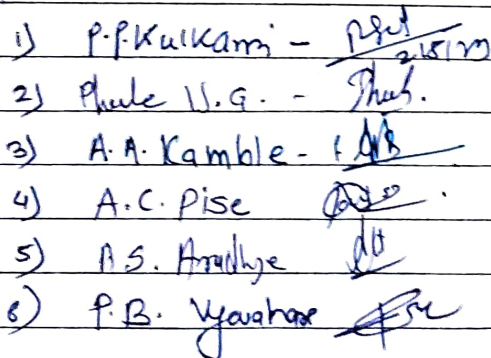 1) P.P. Kulkarni -
2) Phule U.G. -
3) A.A. Kamble -
4) A.C. Pise
5) A.S. Aradhye
6) P.B. Vyavahare